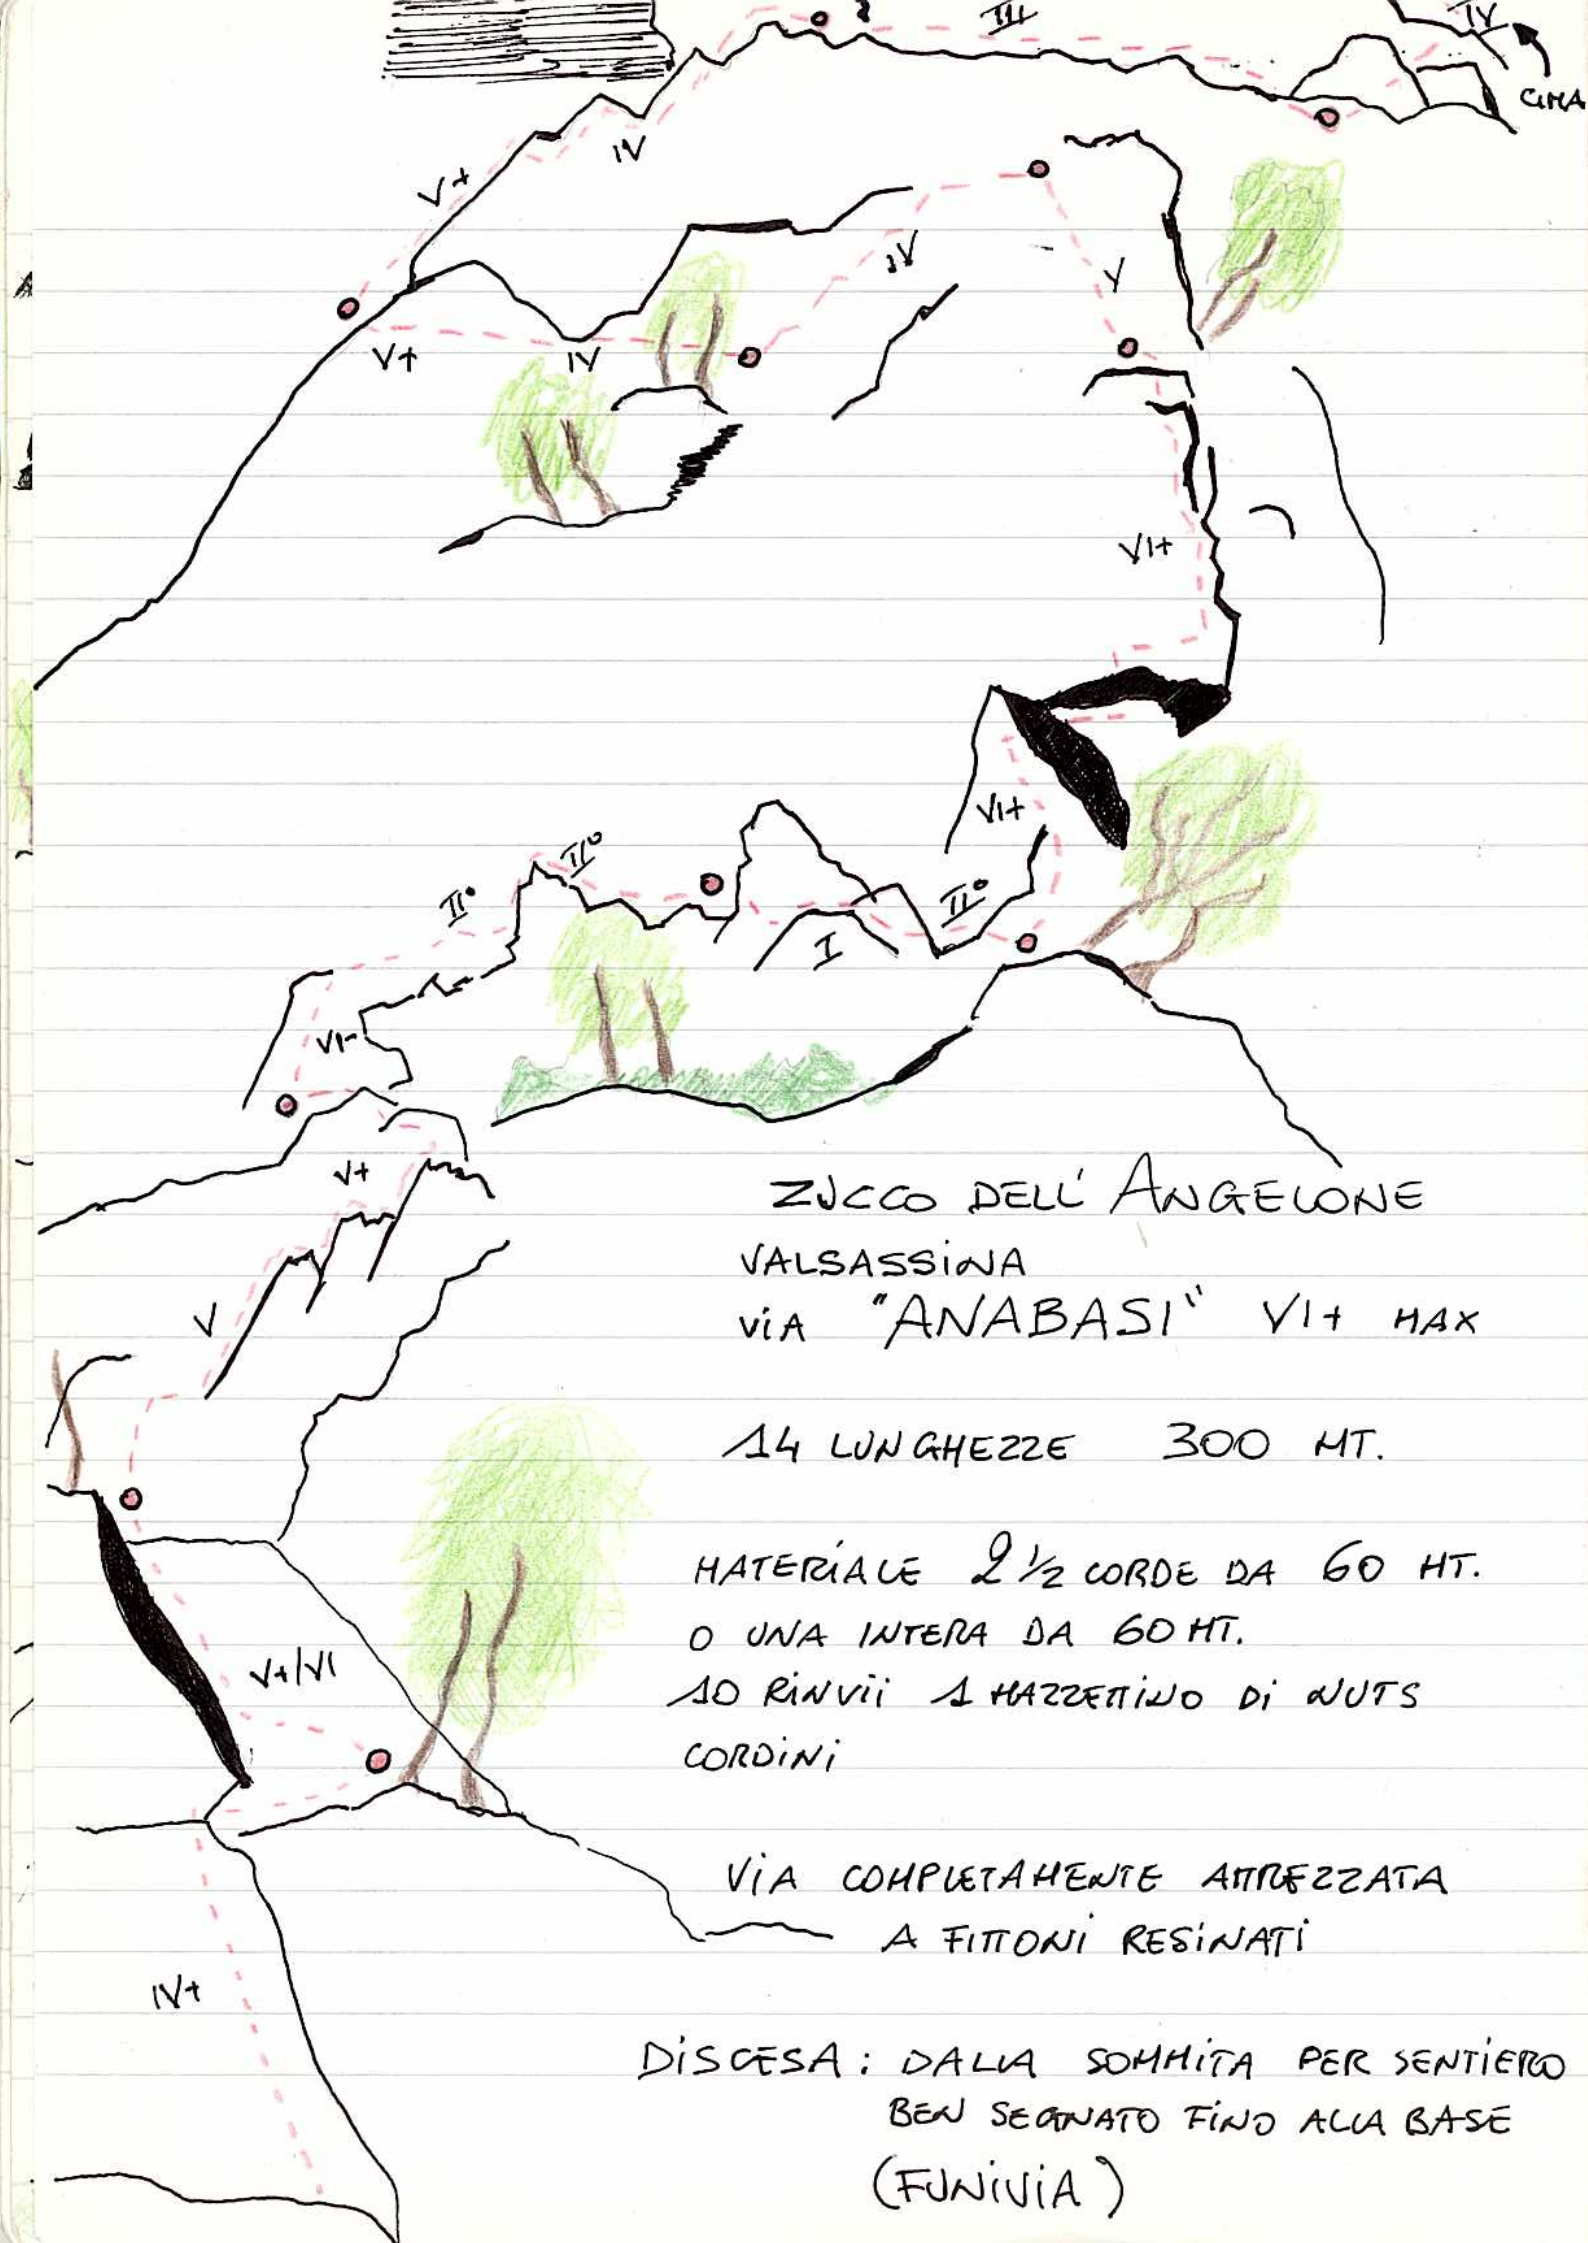 III
IV
CIMA
IV
V+
IV
V
V+
IV
VI+
VI+
II°
II°
II°
I
VI-
V+
ZUCCO DELL' ANGELONE
VALSASSINA
V
VIA "ANABASI" VI+ MAX
14 LUNGHEZZE 300 MT.
MATERIALE 2 1/2 CORDE DA 60 MT.
O UNA INTERA DA 60 MT.
V+/VI
10 RINVII 1 MAZZETTINO DI NUTS
CORDINI
VIA COMPLETAMENTE ATTREZZATA
A FITTONI RESINATI
IV+
DISCESA: DALLA SOMMITA PER SENTIERO
BEN SEGNATO FINO ALLA BASE
(FUNIVIA)